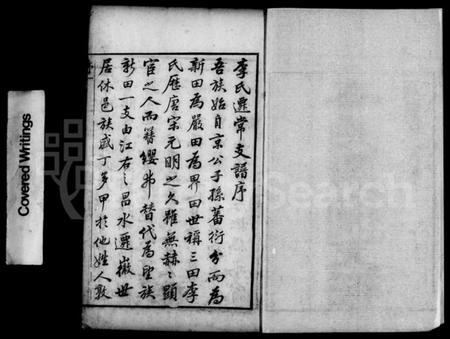 李氏遷常支譜序
吾族始自京公子孫蕃衍分而為
新田為嚴田為界田世稱三田李
氏歷唐宋元明之久雖無赫之顯
宦之人而簪纓弗替代為望族
新田一支由江右之昌水遷徽世
居休邑族盛丁多甲於他姓人敦
Covered Writings